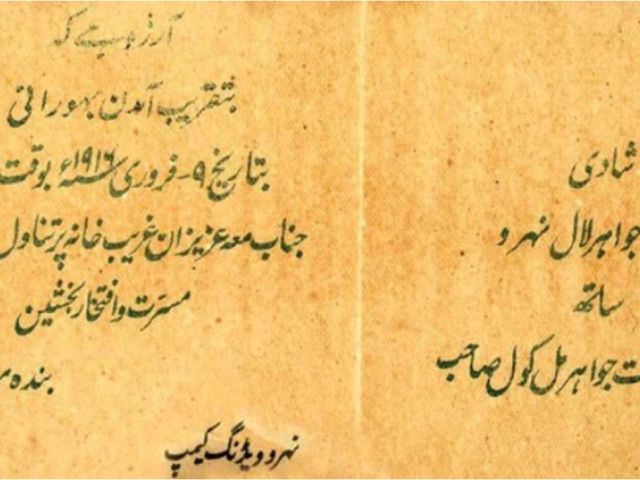 شادی
جواہر لال نہرو
ساتھ
جواہر مل کول صاحب
آرزو ہے کہ
بتقریب آمدن بہورانی
بتاریخ ۹ - فروری سنہ ۱۹۱۶ء بوقت
جناب معہ عزیزان غریب خانہ پر تناول
مسرت و افتخار بخشیں
بندہ
نہرو ویڈنگ کیمپ